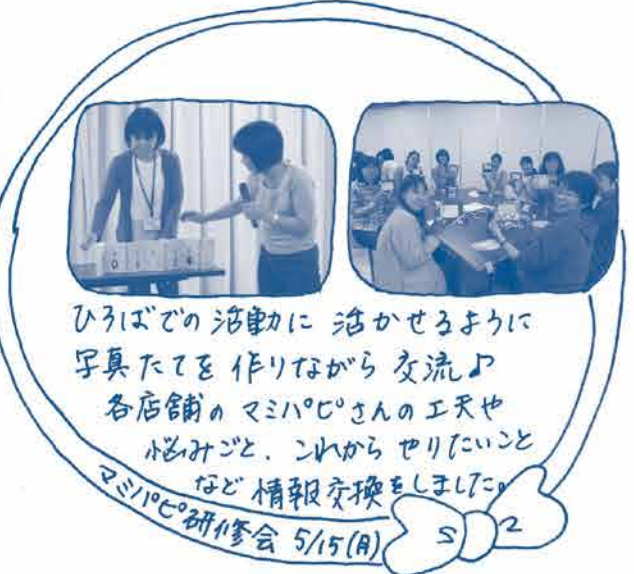 ひろばでの活動に活かせるように
写真たてを作りながら交流♪
各店舗のマミパピさんの工夫や
悩みごと、これからやりたいこと
など情報交換をしました。
マミパピ研修会 5/15(月)
S 2